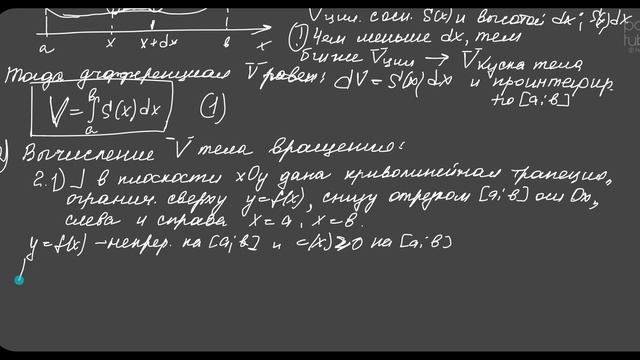 Vцил. с осн. S(x) и высотой dx; S(x)dx
a x x+dx в x
① Чем меньше dx, тем
ближе Vцил → Vкуска тела
Тогда дифференциал V равен: dV = S(x)dx и проинтегрир.
по [a;в]
V = ∫ₐᵇ S(x)dx (1)
Вычисление V тела вращения:
2.1) ⅃ в плоскости xOy дана криволинейная трапеция,
огранич. сверху y=f(x), снизу отрезком [a;в] оси Ox,
слева и справа x=a, x=в.
y=f(x) – непрер. на [a;в] и f(x)≥0 на [a;в]